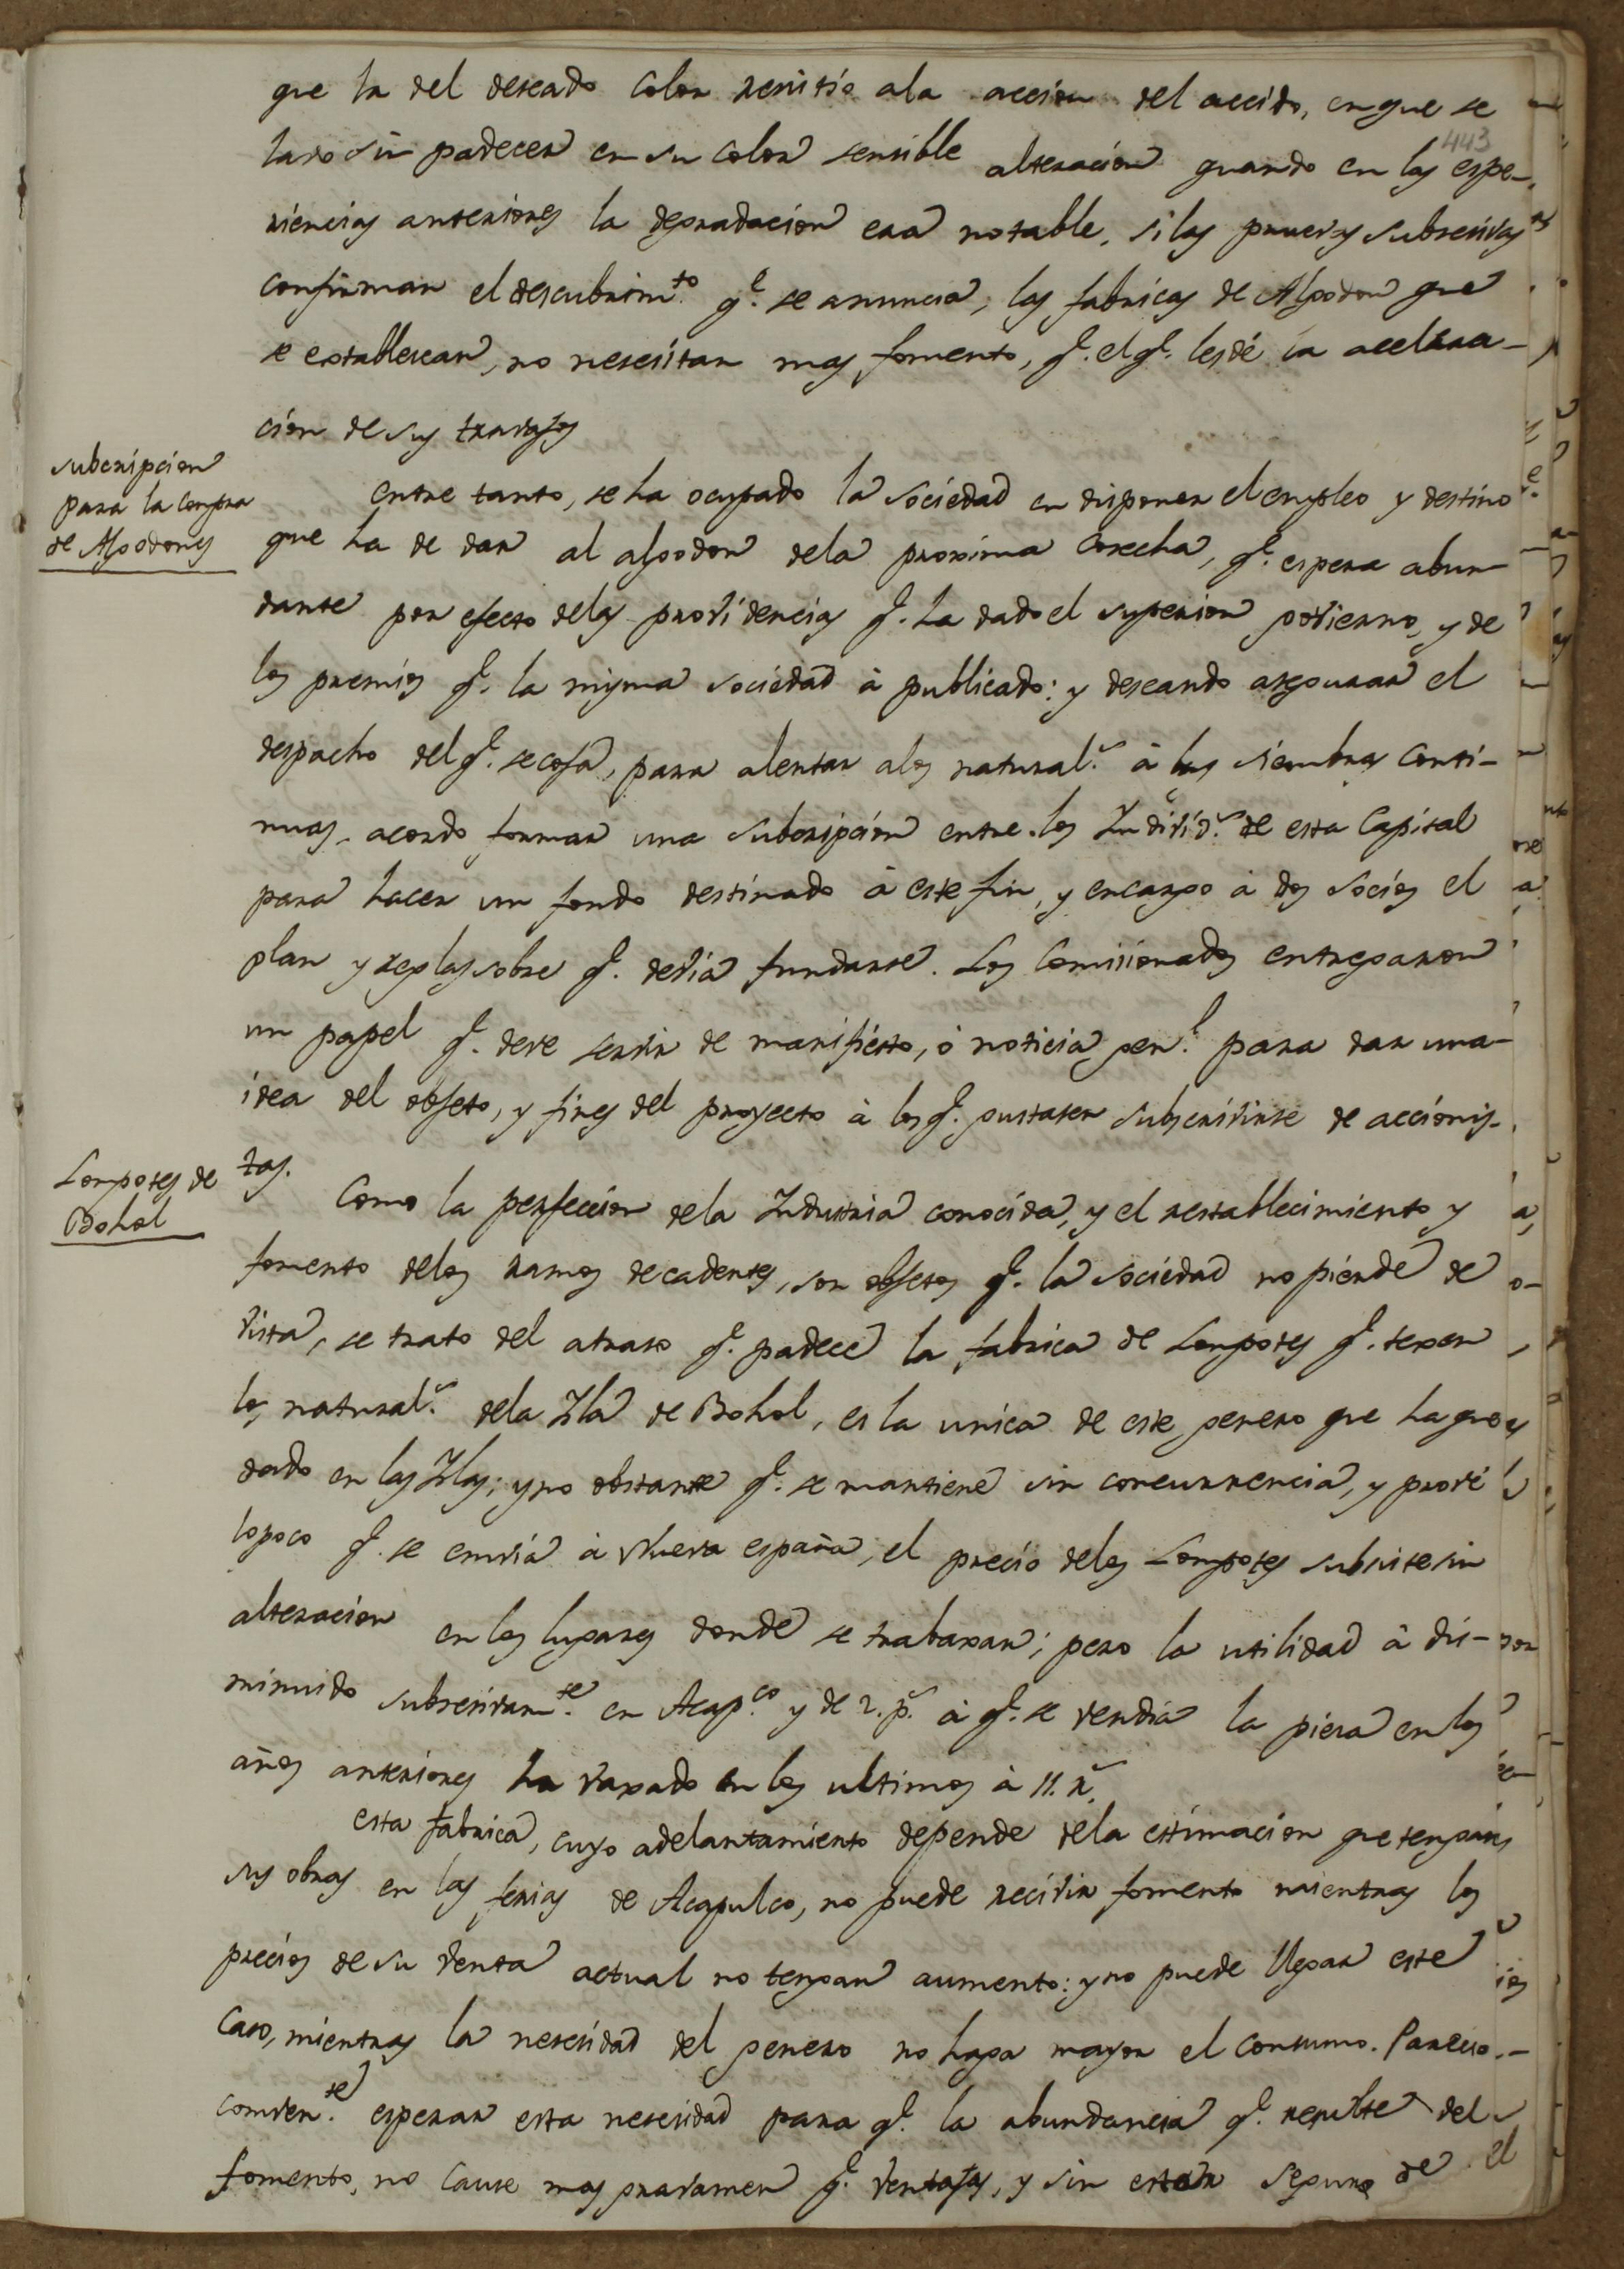 443
que la del deseado color resistio ala accion del accido, enque se
lavo sin padecer en su color sensible alteracion quando en las espe-
riencias anteriores la degradacion era notable. si las pruevas subsesivas
confirman el descubrim.to q.e se anuncia, las fabricas de Algodon que
se establescan, no nesesitan mas fomento, q.e el q.e les dé la acelera-
cion de sus travajos
subcripcion
para la compra
de Algodones
entre tanto, se ha ocupado la sociedad en disponer el empleo y destino
que ha de dar al algodon dela proxima Cosecha, q.e espera abun-
dante por efecto delas providencias q.e ha dado el superior govierno, y de
los premios q.e la misma sociedad à publicado: y deseando asegurar el
despacho del q.e se coja, para alentar alos natural.s à las siembras conti-
nuas, acordo formar una subcripcion entre los Individ.s de esta Capital
para hacer un fondo destinado à este fin, y encargo à dos socios el
plan y reglas sobre q.e devia fundarse. Los Comisionados entregaron
un papel q.e deve servir de manifiesto, ó noticia gen.l para dar una
idea del objeto, y fines del proyecto à los q.e gustasen subscrivirse de accionis-
tas.
Lompotes de
Bohol
Como la perfeccion dela Industria conocida, y el restablecimiento y
fomento delos ramos decadentes, son objetos q.e la sociedad no pierde de
vista, se trato del atraso q.e padece la fabrica de Lompotes q.e texen
los natural.s dela Isla de Bohol, es la unica de este genero que ha que
dado en las Islas; y no obstante q.e se mantiene sin concurrencia, y prové
lo poco q.e se envia à Nueva españa, el precio delos Lompotes subsiste sin
alteracion en los lugares donde se trabaxan; pero la utilidad à dis-
minuido subsesivam.te en Acap.co y de 2. p.s à q.e se vendia la piesa en los
años anteriores ha vaxado en los ultimos à 11. r.s
esta fabrica, cuyo adelantamiento depende dela estimacion que tengan
sus obras en las ferias de Acapulco, no puede recivir fomento mientras los
precios de su venta actual no tengan aumento: y no puede llegar este
caso, mientras la nesesidad del genero no haga mayor el consumo. Parecio
conven.te esperar esta nesesidad para q.e la abundancia q.e resulte del
fomento, no cause mas gravamen q.e ventajas, y sin estar seguros de el